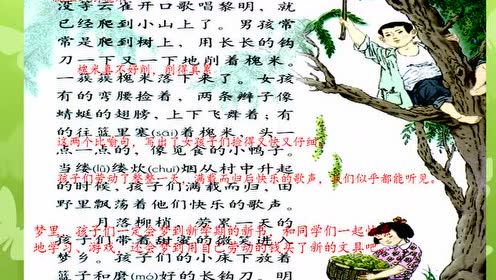 没等云雀开口歌唱黎明，就
已经爬到小山上了。男孩常
常是爬到树上，用长长的钩
刀一下又一下地削着槐米。
槐米真不好削，削得真累
一簇簇槐米落下来了。女孩
有的弯腰捡着，两条辫子像
蜻蜓的翅膀，上下飞舞着；有
的往篮里塞(sāi)着槐米，头一
这两个比喻句，写出了女孩子们捡得又快又仔细
点一点的，像觅食的小鸭子。
当缕(lǚ)缕炊(chuī)烟从村中升起
孩子们劳动了整整一天，满载而归后快乐的歌声，我们似乎都能听见。
的时候，孩子们满载而归，田
野里飘荡着他们快乐的歌声。
月落柳梢，劳累一天的
梦里，孩子们一定会梦到新学期的新书，和同学们一起快乐
孩子们带着甜蜜的微笑进入
地学习、游戏，还会梦到用自己劳动的钱买了新的文具吧
梦乡。孩子们的小床下放着
篮子和磨(mó)好的长钩刀。明